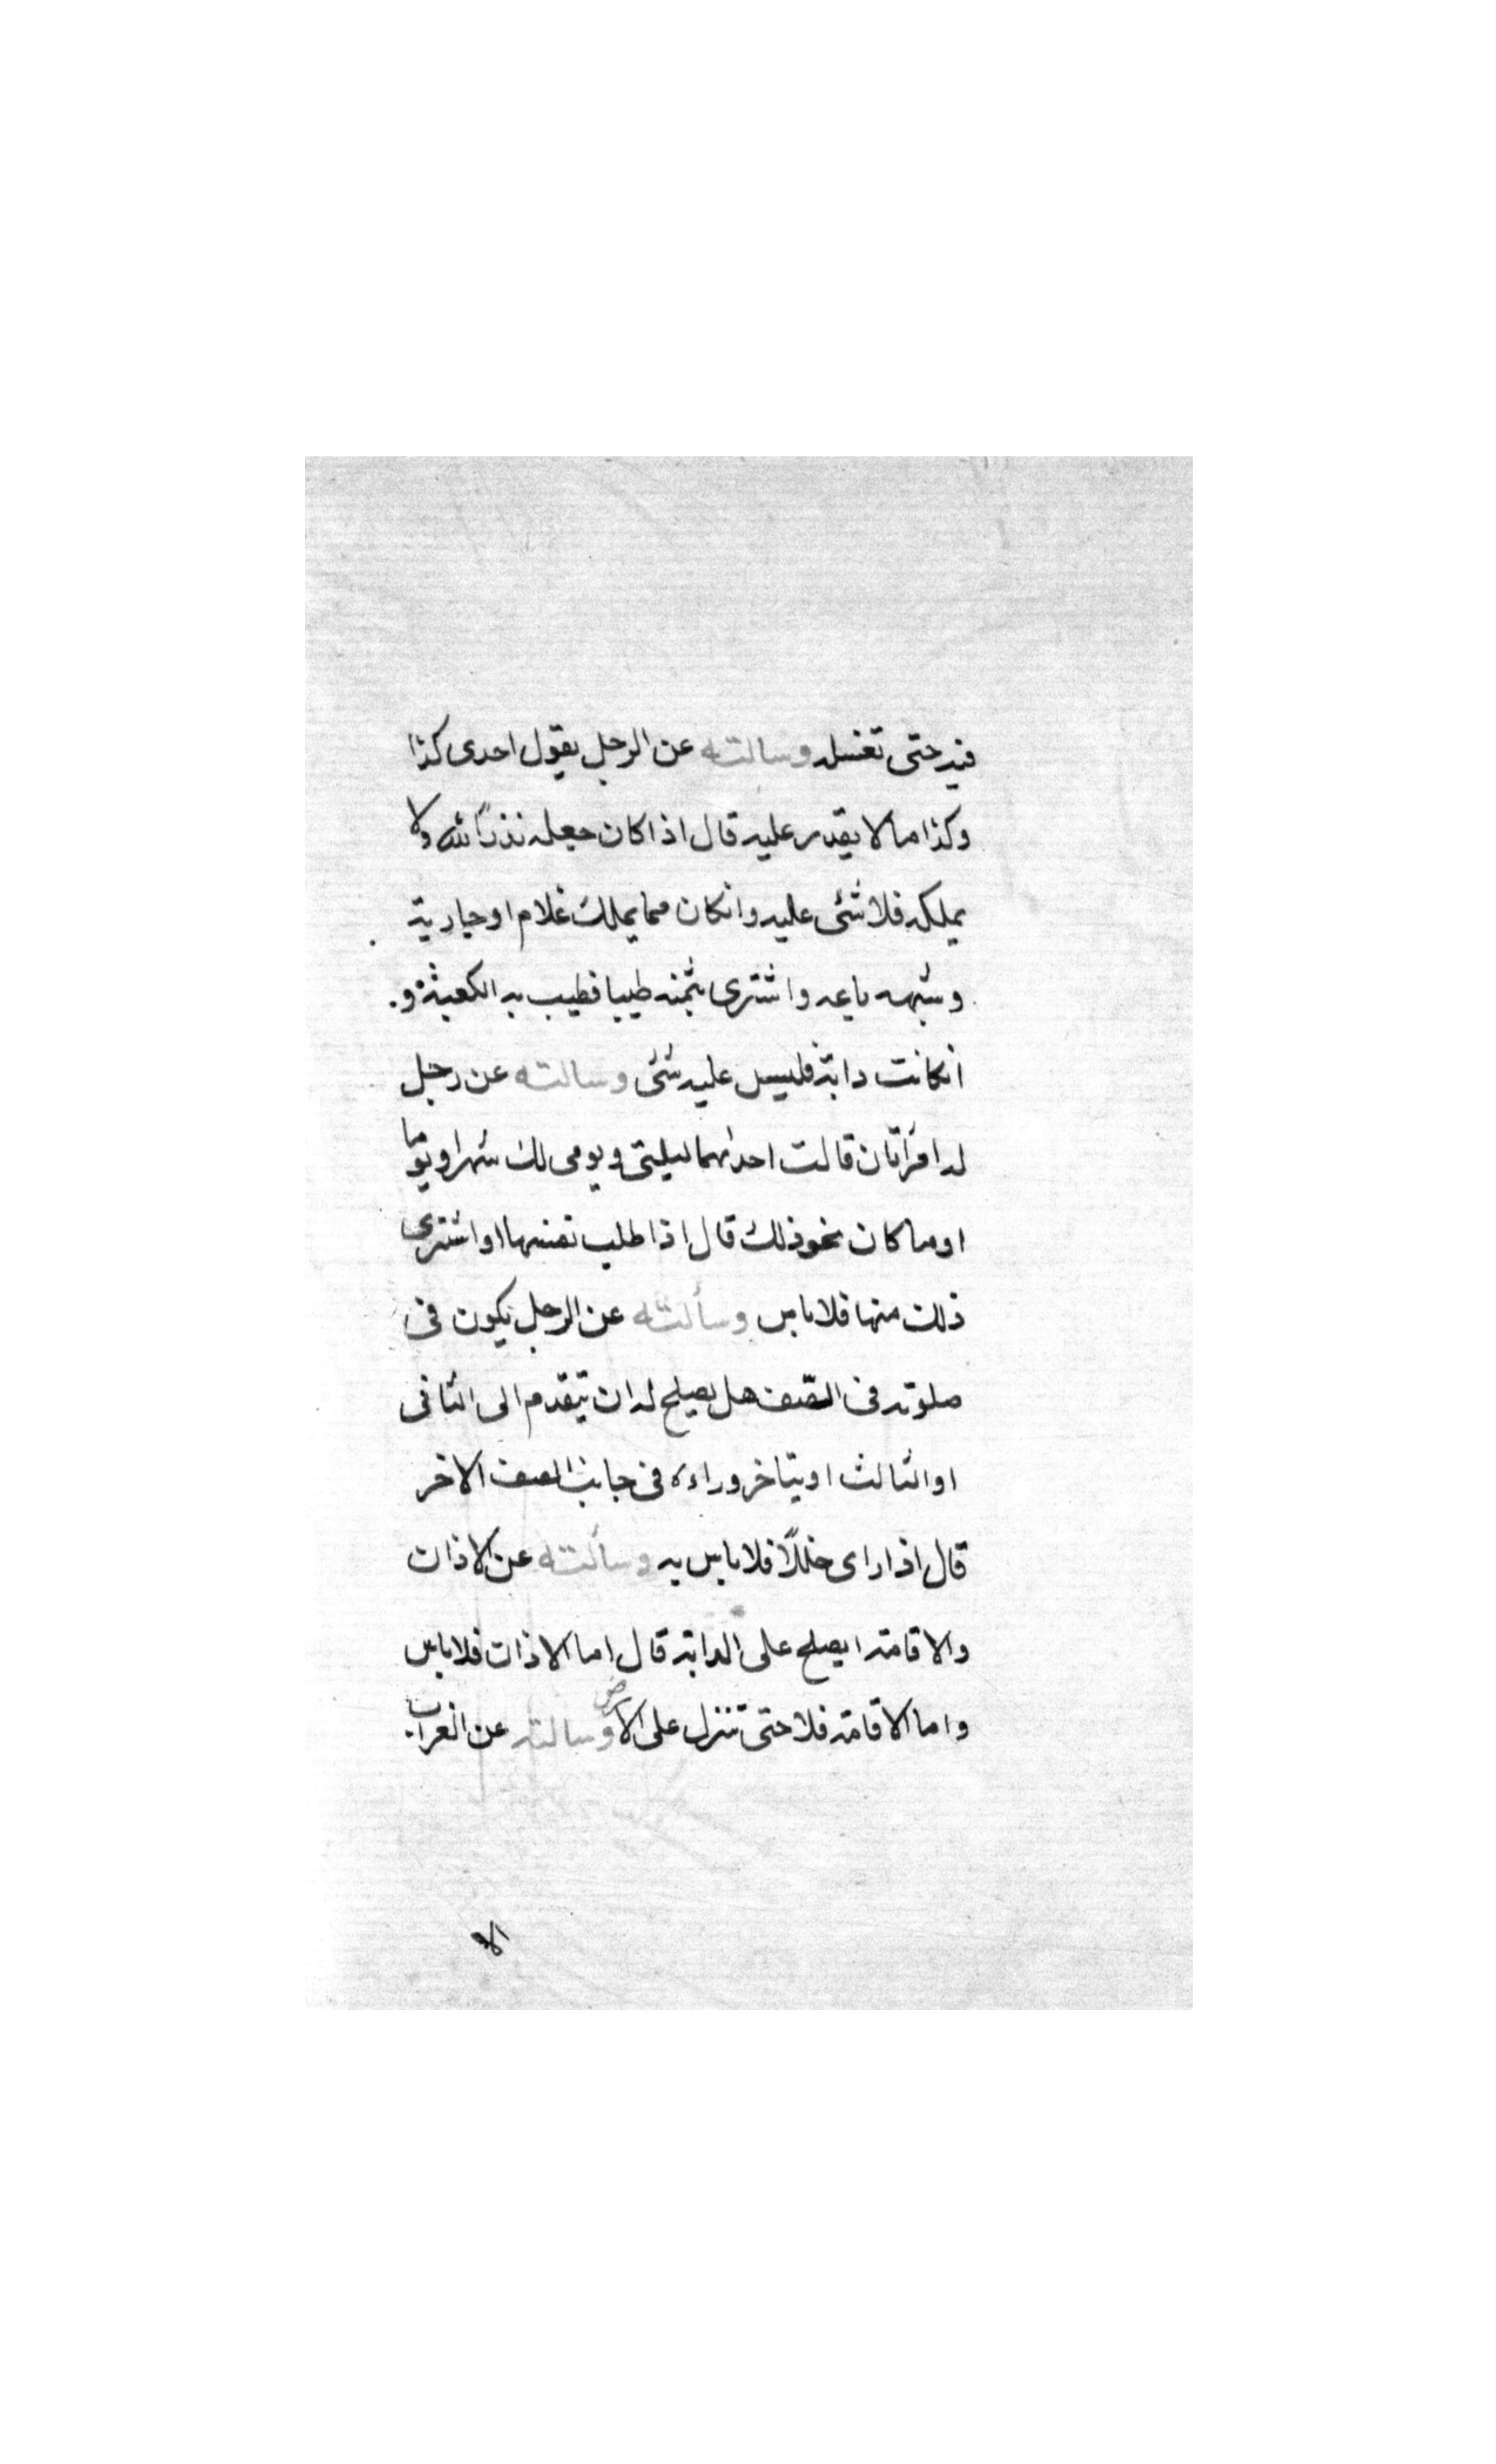 فيه حتى تغسله وسالته عن الرجل يقول اهدى كذا
وكذا ما لا يقدر عليه قال اذا كان جعله نذرًا لله ولا
يملكه فلا شئى عليه وانكان مما يملك غلام او جارية
وشبهه باعه واشترى بثمنه طيبا فطيب به الكعبة و
انكانت دابة فليس عليه شئى وسالته عن رجل
له امرأتان قالت احدٰيهما ليلتى ويومى لك شهرا ويوما
او ما كان نحو ذلك قال اذا طلب نفسها او اشترى
ذلك منها فلا باس وسألته عن الرجل يكون فى
صلوته فى الصّف هل يصلح له ان يتقدم الى الثانى
او الثالث او يتاخر وراءه فى جانب الصف الاخر
قال اذا راى خللًا فلا باس به وسألته عن الاذان
والاقامة ايصلح على الدابة قال اما الاذان فلا باس
واما الاقامة فلا حتى تنزل على الارض وسالته عن الغراب
الا